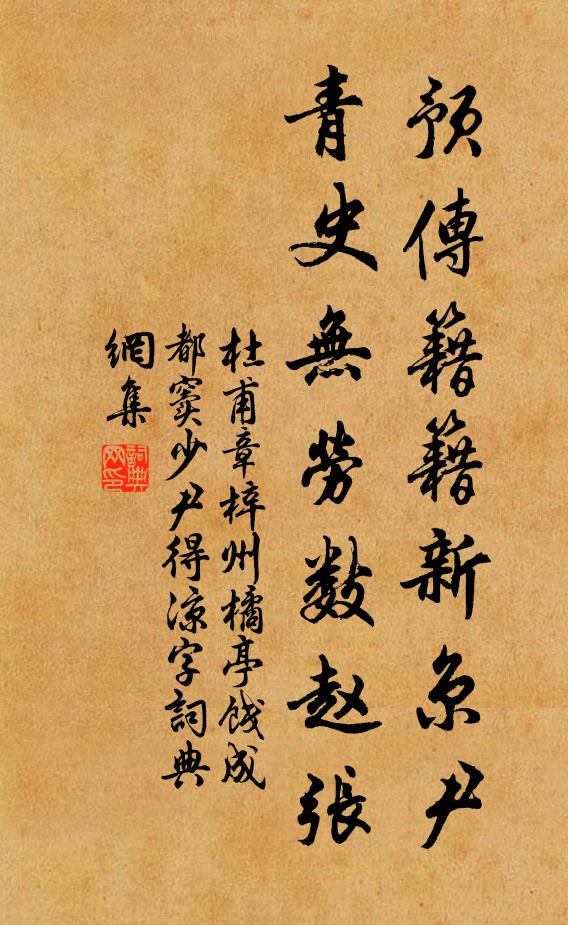 預傳籍籍新京尹
青史無勞數赵張
杜甫章梓州橘亭餞成
都竇少尹得涼字詞典
網集
詞典网印